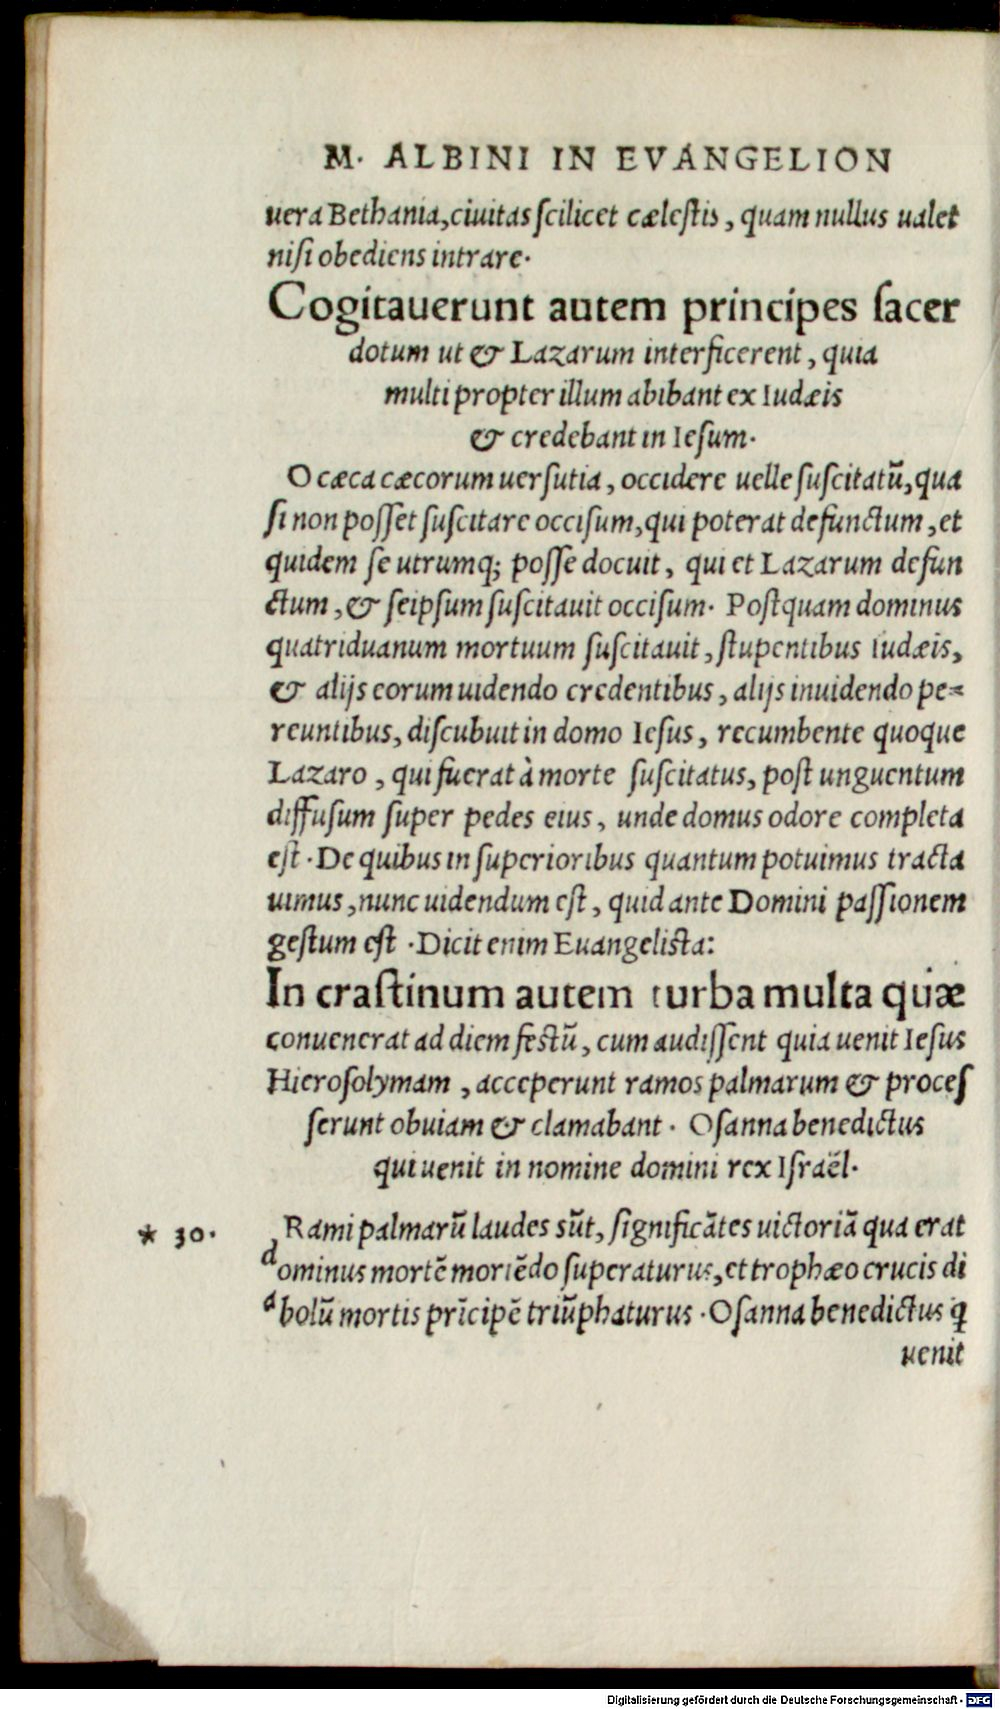 M. ALBINI IN EVANGELION
uera Bethania, ciuitas ſcilicet cæleſtis, quam nullus ualet
niſi obediens intrare.
Cogitauerunt autem principes ſacer
dotum ut & Lazarum interficerent, quia
multi propter illum abibant ex Iudæis
& credebant in Ieſum.
O cæca cæcorum uerſutia, occidere uelle ſuſcitatū, qua
ſi non poſſet ſuſcitare occiſum, qui poterat defunctum, et
quidem ſe utrumq; poſſe docuit, qui et Lazarum defun
ctum, & ſeipſum ſuſcitauit occiſum. Poſtquam dominus
quatriduanum mortuum ſuſcitauit, ſtupentibus Iudæis,
& alijs eorum uidendo credentibus, alijs inuidendo pe=
reuntibus, diſcubuit in domo Ieſus, recumbente quoque
Lazaro, qui fuerat à morte ſuſcitatus, poſt unguentum
diffuſum ſuper pedes eius, unde domus odore completa
eſt. De quibus in ſuperioribus quantum potuimus tracta
uimus, nunc uidendum eſt, quid ante Domini paſſionem
geſtum eſt. Dicit enim Euangeliſta:
In craſtinum autem turba multa quæ
conuenerat ad diem feſtū, cum audiſſent quia uenit Ieſus
Hieroſolymam, acceperunt ramos palmarum & proceſ
ſerunt obuiam & clamabant. Oſanna benedictus
qui uenit in nomine domini rex Iſraël.
* 30. Rami palmarū laudes sūt, ſignificātes uictoriā qua erat
dominus mortē moriēdo ſuperaturus, et trophæo crucis di
abolū mortis prīcipē triūphaturus. Oſanna benedictus q̄
uenit
Digitalisierung gefördert durch die Deutsche Forschungsgemeinschaft - DFG